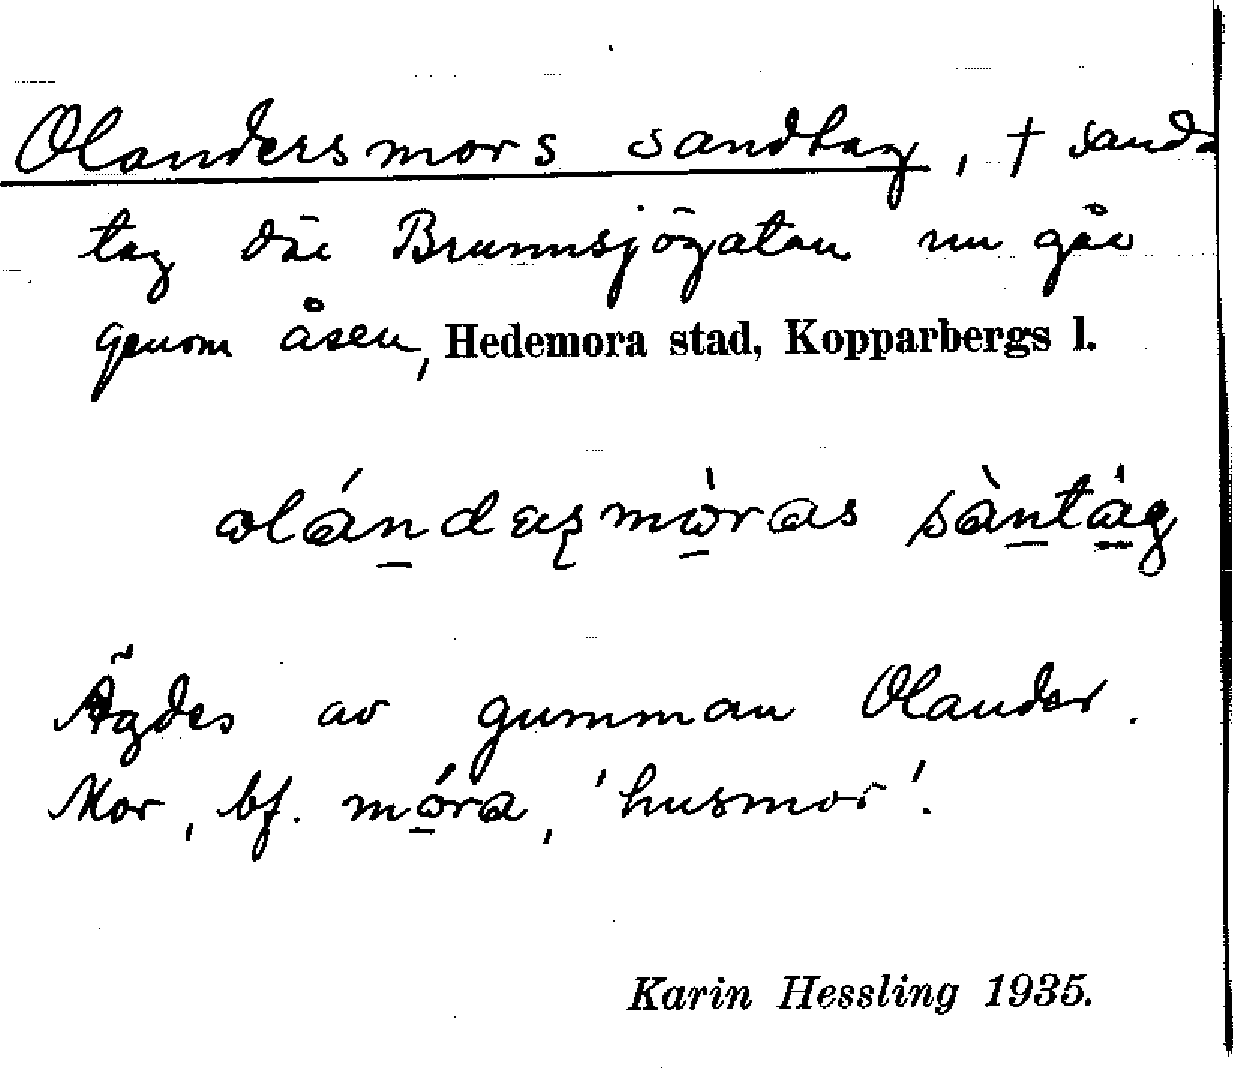 Olandersmors sandtag, † sand-
tag där Brunnsjögatan nu går
genom åsen, Hedemora stad, Kopparbergs l.
Ägdes av gumman Olander.
Mor, bf. móra, 'husmor'.
Karin Hessling 1935.